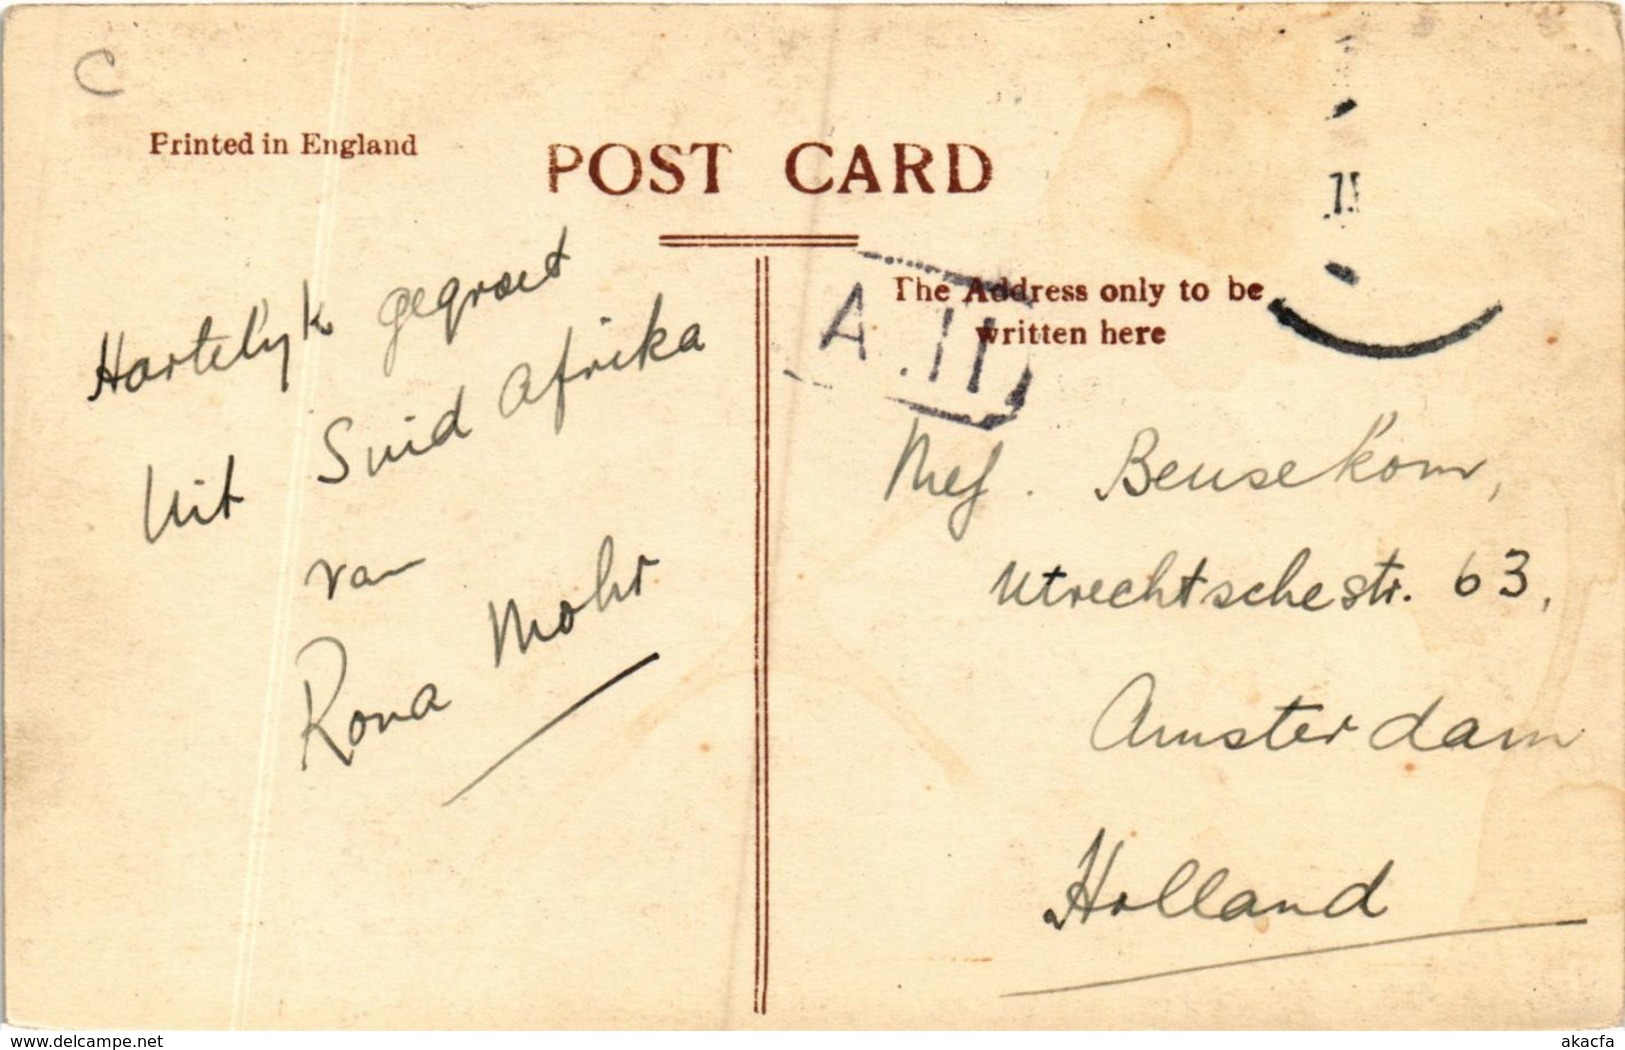 C
Printed in England
POST CARD
Hartelyk gegroet
Uit Suid Afrika
van
Rona Mohr
The Address only to be
written here
A .11
Mej. Beusekom,
Utrechtschestr. 63,
Amsterdam
Holland
www.delcampe.net
akacfa